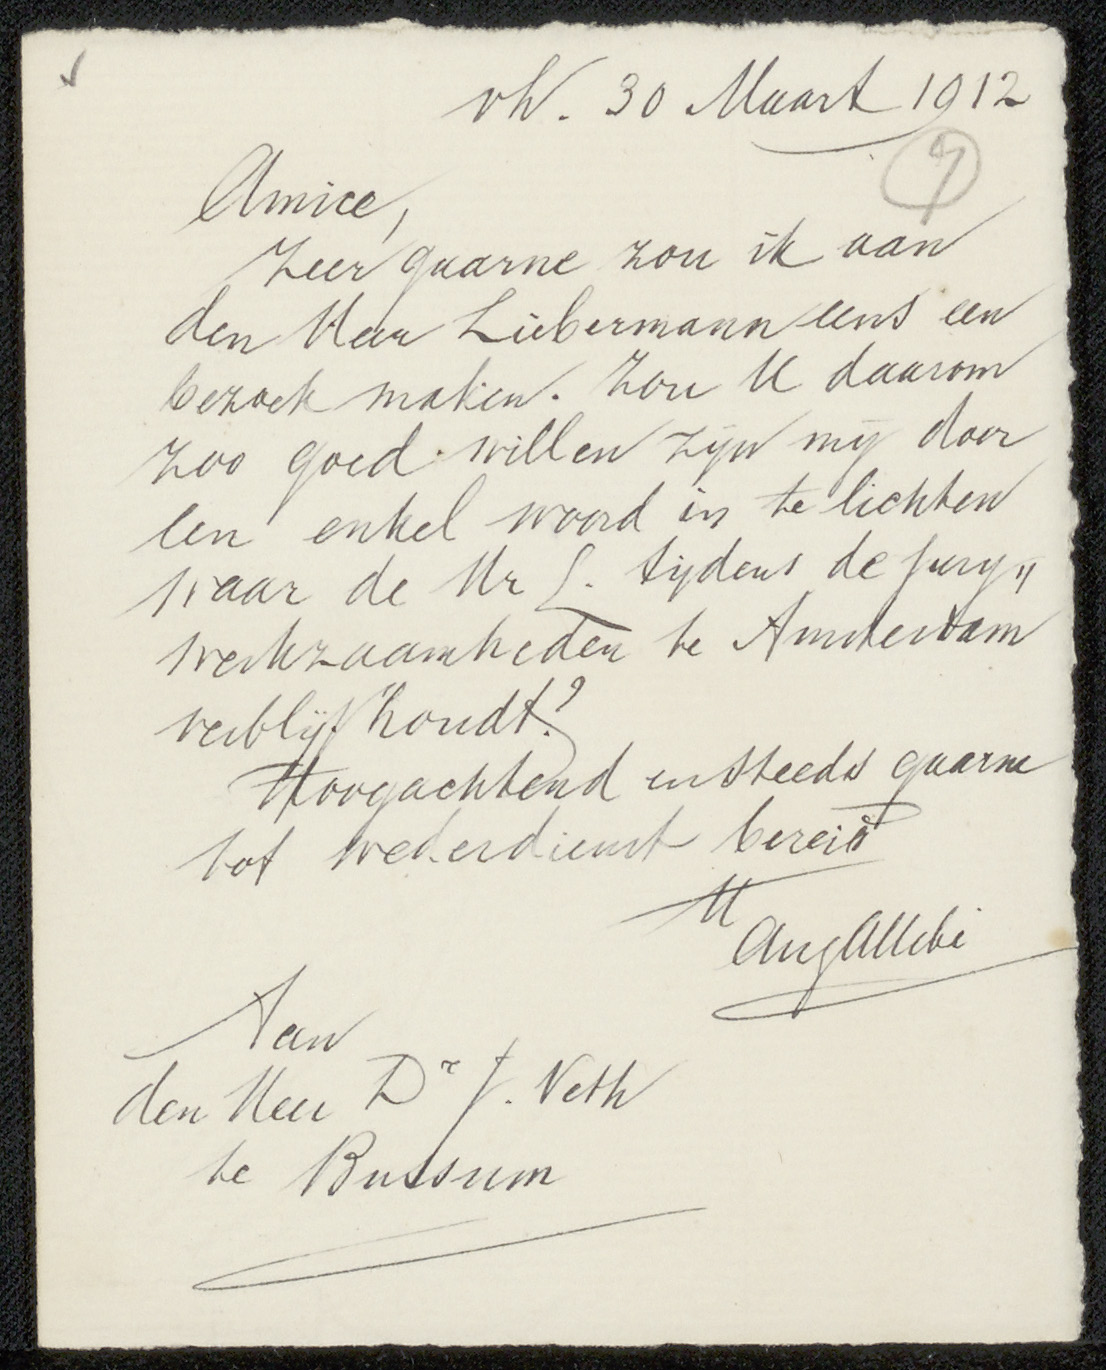 vh. 30 Maart 1912
7
Amice,
Zeer gaarne zou ik aan
den Heer Liebermann eens een
bezoek maken. Zou U daarom
zoo goed willen zijn mij door
een enkel woord in te lichten
waar de Hr L. tijdens de jury„
werkzaamheden te Amsterdam
verblijf houdt?
Hoogachtend en steeds gaarne
tot wederdienst bereid
Aug Allebé
Aan
den Heer Dr J. Veth
te Bussum